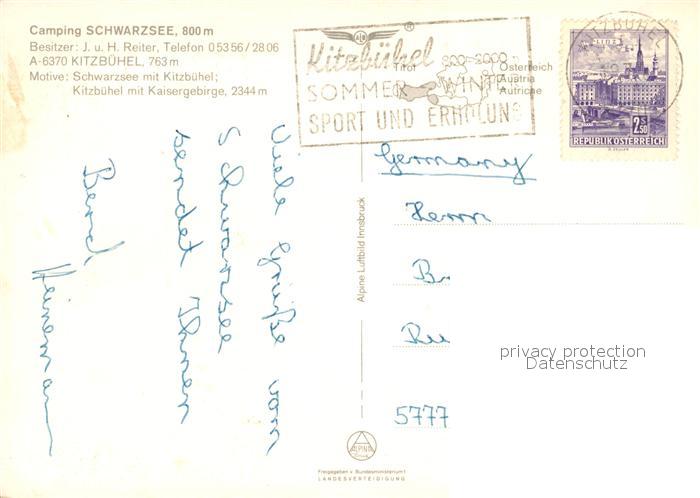 Camping SCHWARZSEE, 800 m
Besitzer: J. u. H. Reiter, Telefon 0 53 56 / 28 06
A-6370 KITZBÜHEL, 763 m
Motive: Schwarzsee mit Kitzbühel;
Kitzbühel mit Kaisergebirge, 2344 m
Kitzbühel
800-2000
Tirol
Österreich
Austria
Autriche
SOMMER WINTER
SPORT UND ERHOLUNG
KITZBÜHEL
LINZ
2.50
REPUBLIK ÖSTERREICH
Viele Grüße vom
Schwarzsee
sendet Ihnen
Bernd
Alpine Luftbild Innsbruck
Germany
Herrn
B
Ru
5777
privacy protection
Datenschutz
ALPINE
Freigegeben v. Bundesministerium f.
LANDESVERTEIDIGUNG